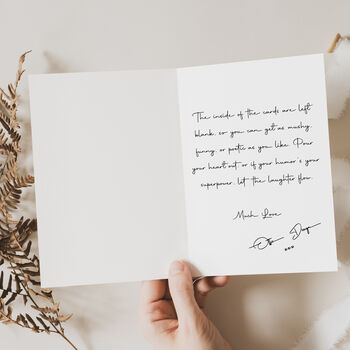 The inside of the cards are left
blank, so you can get as mushy,
funny, or poetic as you like. Pour
your heart out or if your humor's your
superpower, let the laughter flow.
Much Love
xxx